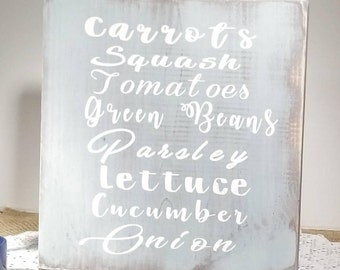 Carrots
Squash
Tomatoes
Green Beans
Parsley
Lettuce
Cucumber
Onion